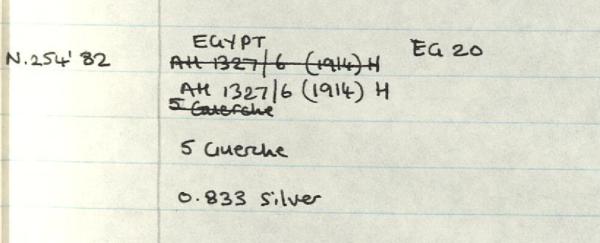 EGYPT
N.254'82 AH 1327/6 (1914) H EG 20
AH 1327/6 (1914) H
5 Guerche
5 Guerche
0.833 Silver